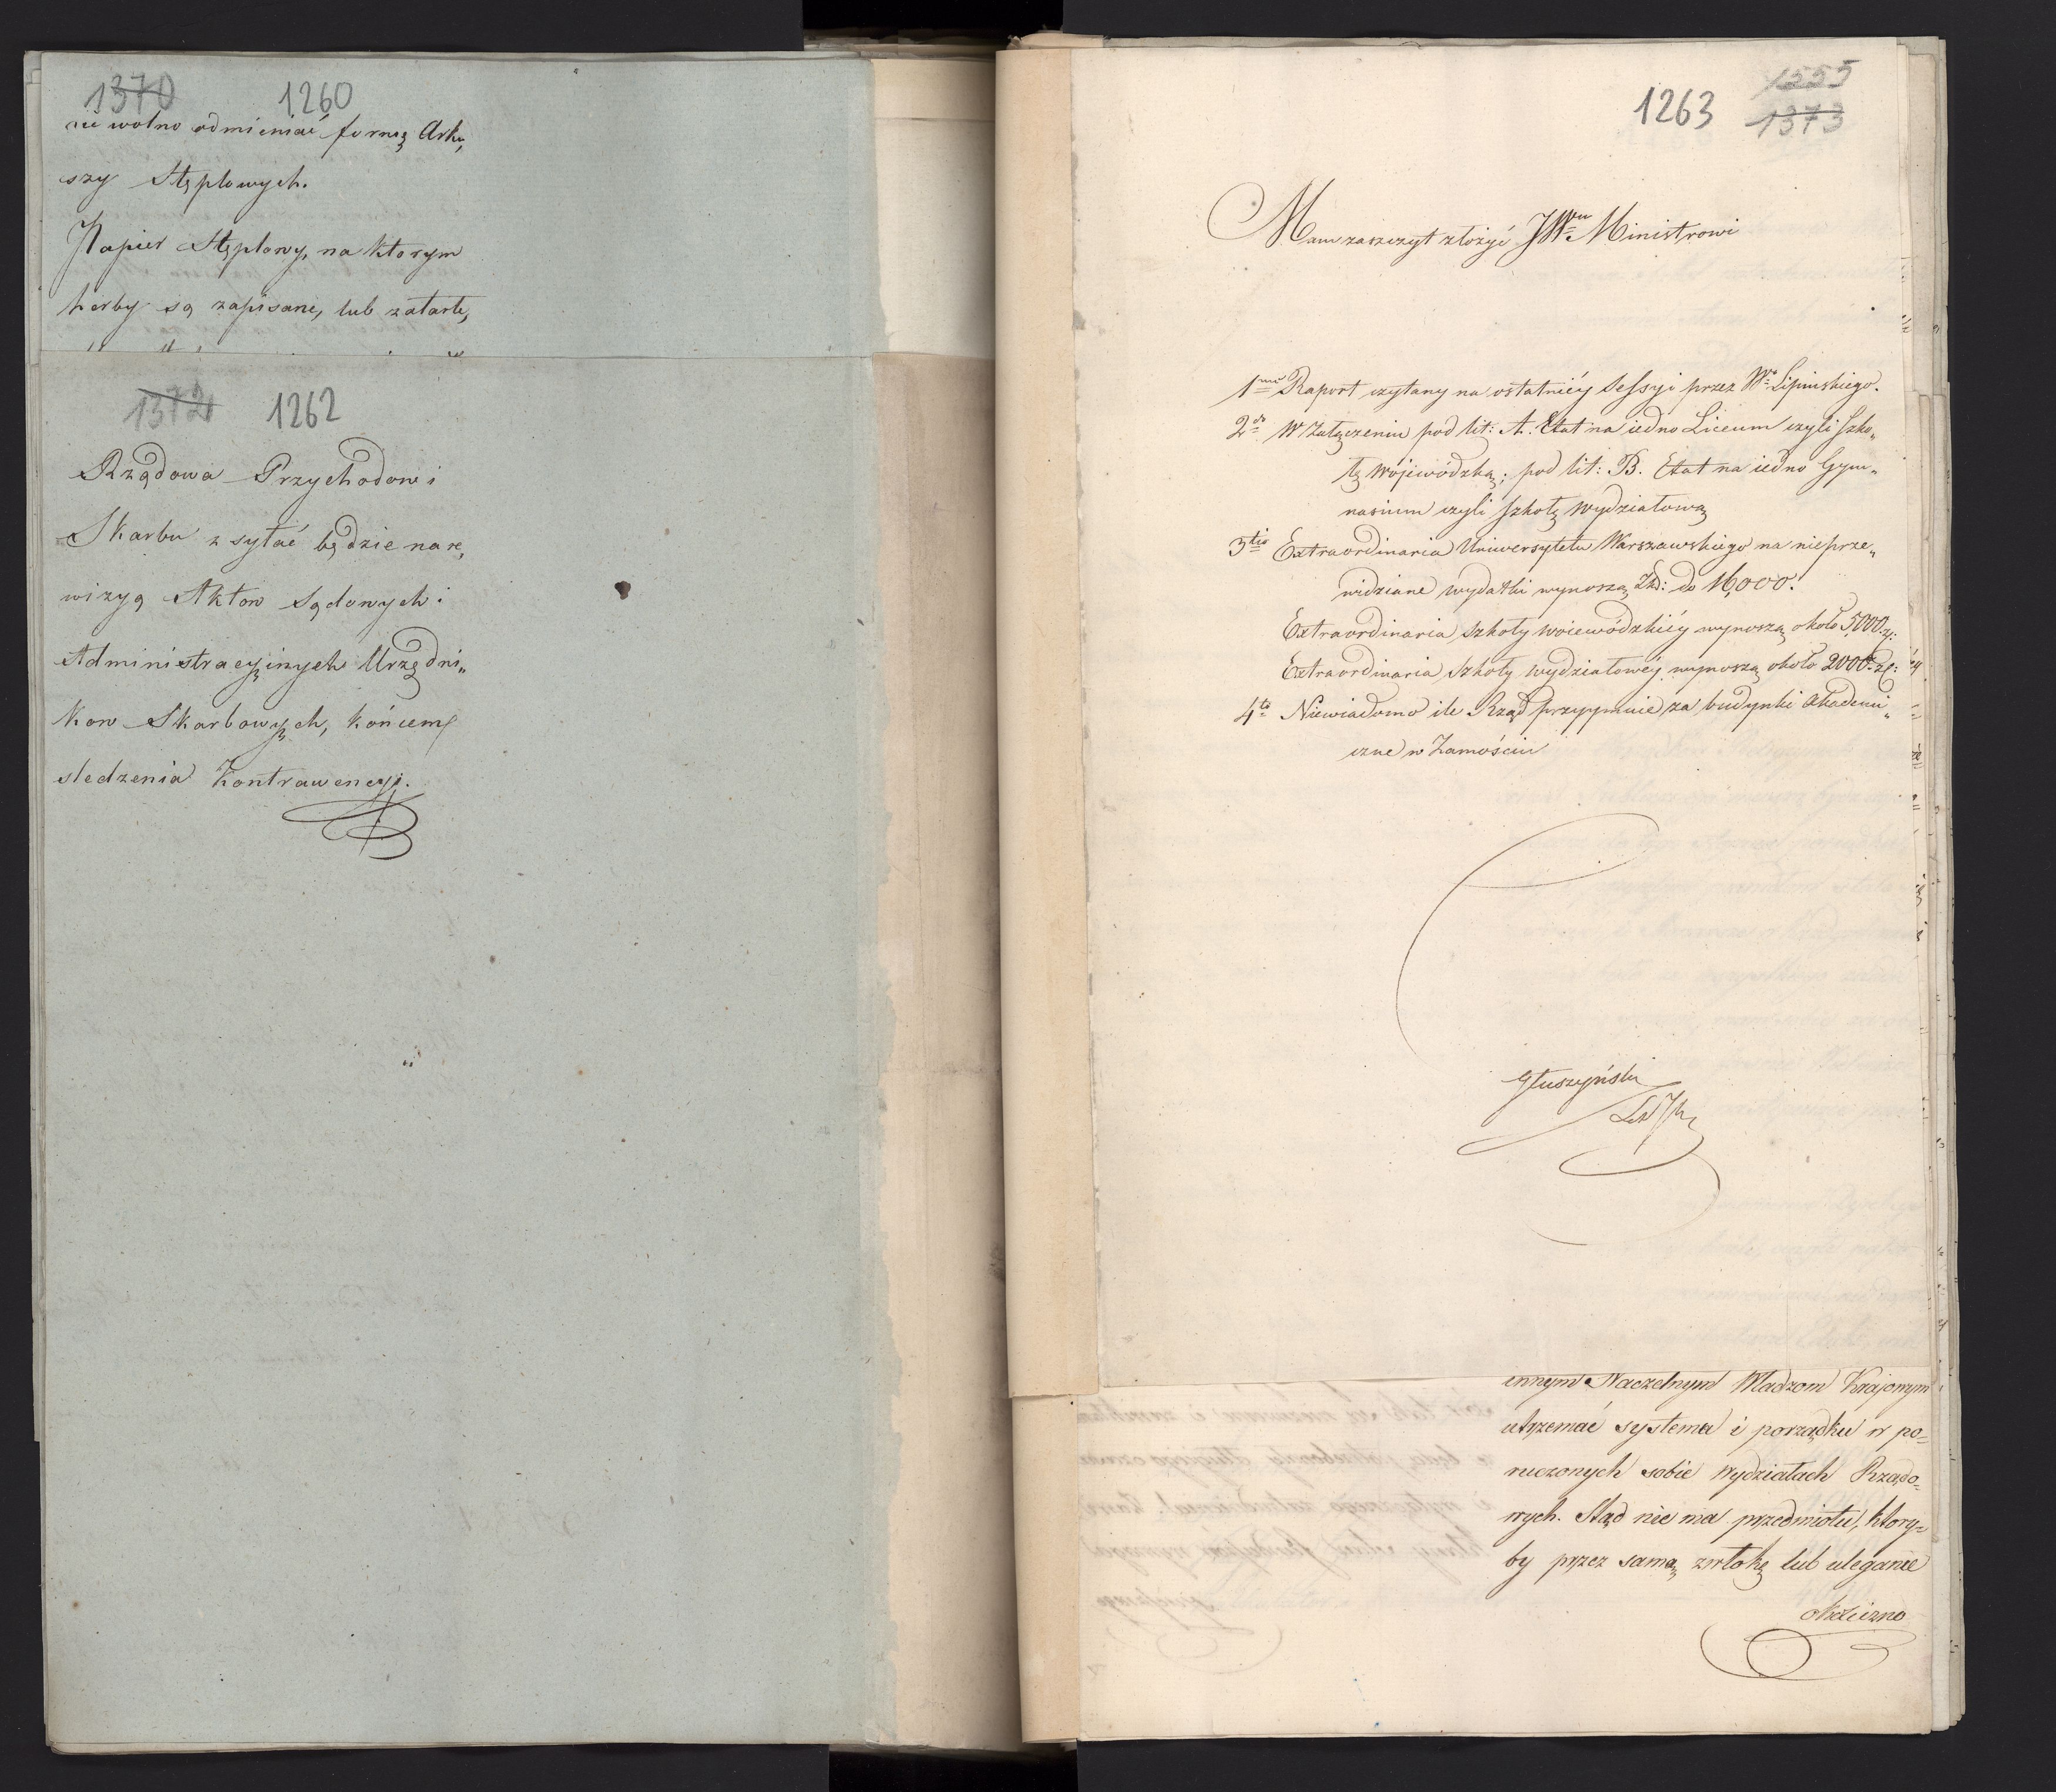 1370 1260
nie wolno odmieniać formę Arku,
szy Stęplowych.
Papier Stęplowy, na ktorym
herby są zapisane, lub zatarte,
1372 1262
Rządowa Przychodow i
Skarbu zsyłać będzie na re,
wizyą Aktow Sądowych i
Administracyinych Urzędni„
kow Skarbowych, końcem
sledzenia Kontrawencyi.
1263 1373
Mam zaszczyt złożyć JWmu Ministrowi
1mo Raport czytany na ostatniéy Sessyi przez Wo Lipinskiego.
2do W Załączeniu pod lit: A. Etat na iedno Liceum czyli Szko„
łę Wojewódzką; pod lit: B. Etat na iedno Gym„
nasium czyli Szkołę Wydziałową
3tio Extraordinaria Uniwersytetu Warszawskiego na nieprze„
widziane wydatki wynoszą do 16,000.
Extraordinaria Szkoły woiewódzkiéy wynoszą około 5,000 zł:
Extraordinaria Szkoły wydziałowéy wynoszą około 2000 zł:
4to Niewiadomo ile Rząd przyymuie za budynki Akademi„
czne w Zamościu
Głuszyński
innym Naczelnym Władzom Krajowym
utrzemać systema i porządku w po=
ruczonych sobie Wydziałach Rządo=
wych. Stąd nie ma przedmiotu, który=
by przez samą zwłokę lub uleganie